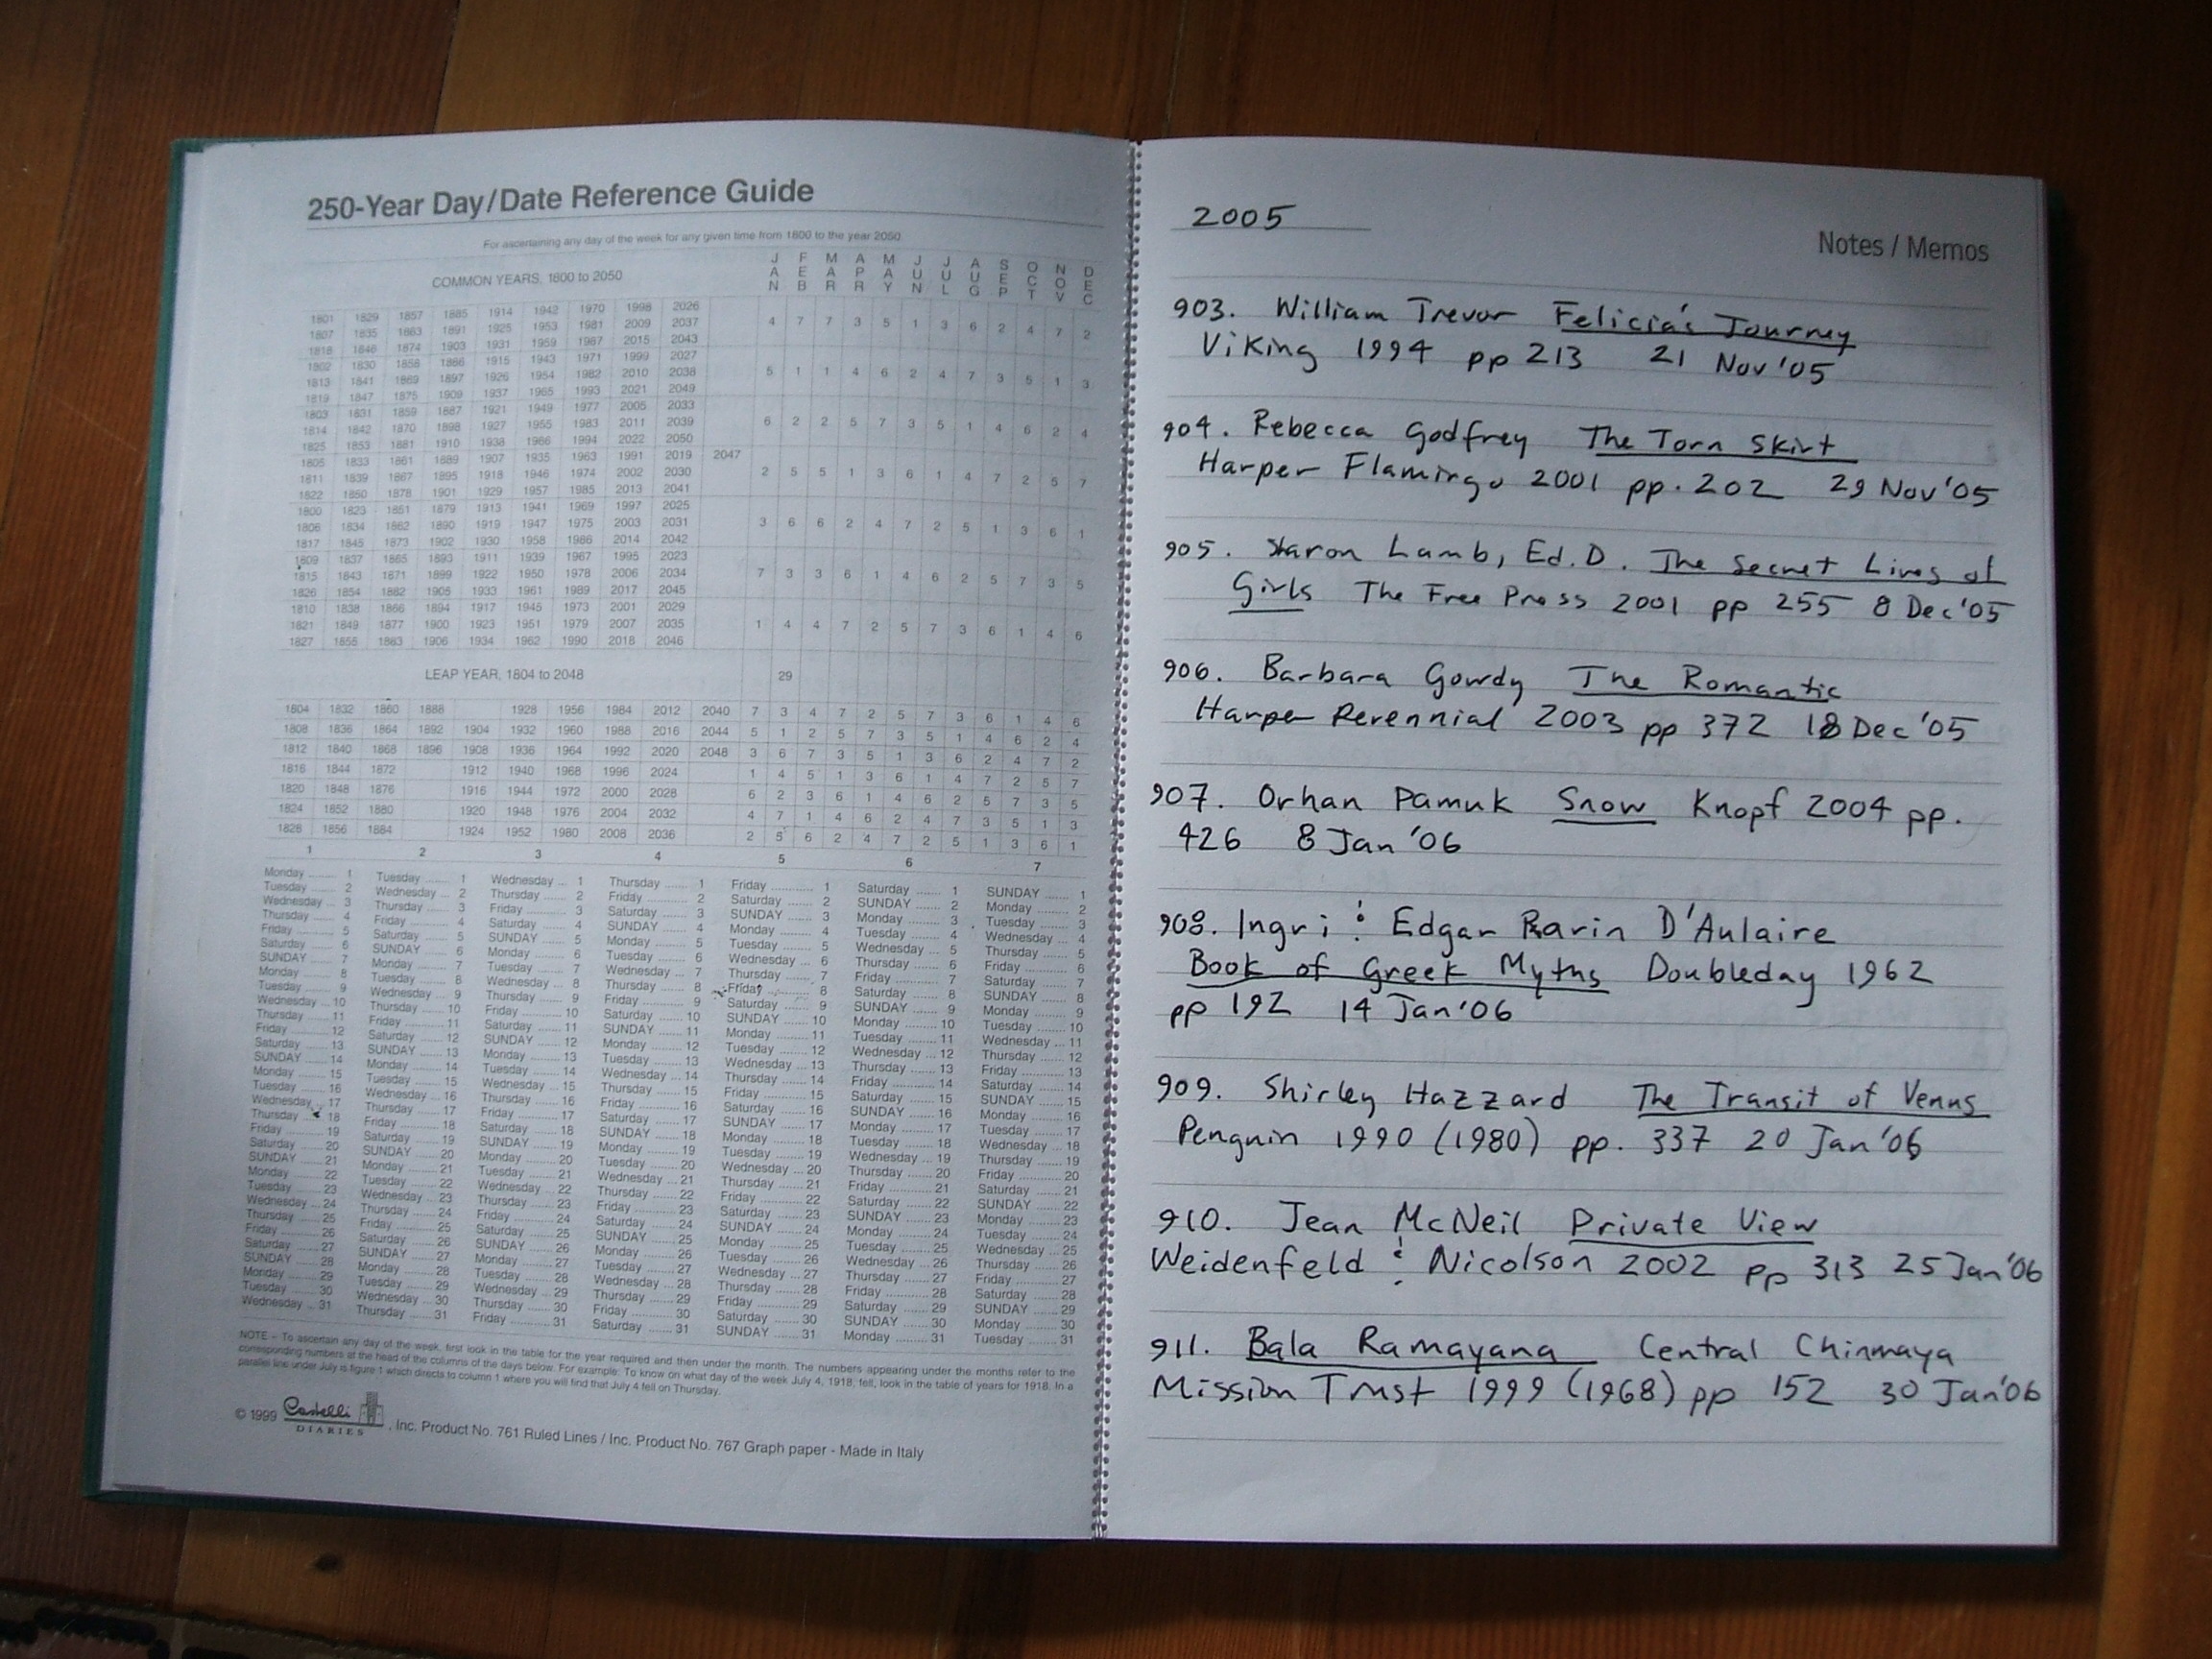 250-Year Day/Date Reference Guide
For ascertaining any day of the week for any given time from 1800 to the year 2050.
COMMON YEARS, 1800 to 2050 JAN FEB MAR APR MAY JUN JUL AUG SEP OCT NOV DEC
1801 1829 1857 1885 1914 1942 1970 1998 2026
1807 1835 1863 1891 1925 1953 1981 2009 2037 4 7 7 3 5 1 3 6 2 4 7 2
1818 1846 1874 1903 1931 1959 1987 2015 2043
1802 1830 1858 1886 1915 1943 1971 1999 2027
1813 1841 1869 1897 1926 1954 1982 2010 2038 5 1 1 4 6 2 4 7 3 5 1 3
1819 1847 1875 1909 1937 1965 1993 2021 2049
1803 1831 1859 1887 1921 1949 1977 2005 2033
1814 1842 1870 1898 1927 1955 1983 2011 2039 6 2 2 5 7 3 5 1 4 6 2 4
1825 1853 1881 1910 1938 1966 1994 2022 2050
1805 1833 1861 1889 1907 1935 1963 1991 2019 2047
1811 1839 1867 1895 1918 1946 1974 2002 2030 2 5 5 1 3 6 1 4 7 2 5 7
1822 1850 1878 1901 1929 1957 1985 2013 2041
1800 1823 1851 1879 1913 1941 1969 1997 2025
1806 1834 1862 1890 1919 1947 1975 2003 2031 3 6 6 2 4 7 2 5 1 3 6 1
1817 1845 1873 1902 1930 1958 1986 2014 2042
1809 1837 1865 1893 1911 1939 1967 1995 2023
1815 1843 1871 1899 1922 1950 1978 2006 2034 7 3 3 6 1 4 6 2 5 7 3 5
1826 1854 1882 1905 1933 1961 1989 2017 2045
1810 1838 1866 1894 1917 1945 1973 2001 2029
1821 1849 1877 1900 1923 1951 1979 2007 2035 1 4 4 7 2 5 7 3 6 1 4 6
1827 1855 1883 1906 1934 1962 1990 2018 2046
LEAP YEAR, 1804 to 2048 29
1804 1832 1860 1888 1928 1956 1984 2012 2040 7 3 4 7 2 5 7 3 6 1 4 6
1808 1836 1864 1892 1904 1932 1960 1988 2016 2044 5 1 2 5 7 3 5 1 4 6 2 4
1812 1840 1868 1896 1908 1936 1964 1992 2020 2048 3 6 7 3 5 1 3 6 2 4 7 2
1816 1844 1872 1912 1940 1968 1996 2024 1 4 5 1 3 6 1 4 7 2 5 7
1820 1848 1876 1916 1944 1972 2000 2028 6 2 3 6 1 4 6 2 5 7 3 5
1824 1852 1880 1920 1948 1976 2004 2032 4 7 1 4 6 2 4 7 3 5 1 3
1828 1856 1884 1924 1952 1980 2008 2036 2 5 6 2 4 7 2 5 1 3 6 1
1 2 3 4 5 6 7
Monday 1 Tuesday 1 Wednesday 1 Thursday 1 Friday 1 Saturday 1 SUNDAY 1
Tuesday 2 Wednesday 2 Thursday 2 Friday 2 Saturday 2 SUNDAY 2 Monday 2
Wednesday 3 Thursday 3 Friday 3 Saturday 3 SUNDAY 3 Monday 3 Tuesday 3
Thursday 4 Friday 4 Saturday 4 SUNDAY 4 Monday 4 Tuesday 4 Wednesday 4
Friday 5 Saturday 5 SUNDAY 5 Monday 5 Tuesday 5 Wednesday 5 Thursday 5
Saturday 6 SUNDAY 6 Monday 6 Tuesday 6 Wednesday 6 Thursday 6 Friday 6
SUNDAY 7 Monday 7 Tuesday 7 Wednesday 7 Thursday 7 Friday 7 Saturday 7
Monday 8 Tuesday 8 Wednesday 8 Thursday 8 Friday 8 Saturday 8 SUNDAY 8
Tuesday 9 Wednesday 9 Thursday 9 Friday 9 Saturday 9 SUNDAY 9 Monday 9
Wednesday 10 Thursday 10 Friday 10 Saturday 10 SUNDAY 10 Monday 10 Tuesday 10
Thursday 11 Friday 11 Saturday 11 SUNDAY 11 Monday 11 Tuesday 11 Wednesday 11
Friday 12 Saturday 12 SUNDAY 12 Monday 12 Tuesday 12 Wednesday 12 Thursday 12
Saturday 13 SUNDAY 13 Monday 13 Tuesday 13 Wednesday 13 Thursday 13 Friday 13
SUNDAY 14 Monday 14 Tuesday 14 Wednesday 14 Thursday 14 Friday 14 Saturday 14
Monday 15 Tuesday 15 Wednesday 15 Thursday 15 Friday 15 Saturday 15 SUNDAY 15
Tuesday 16 Wednesday 16 Thursday 16 Friday 16 Saturday 16 SUNDAY 16 Monday 16
Wednesday 17 Thursday 17 Friday 17 Saturday 17 SUNDAY 17 Monday 17 Tuesday 17
Thursday 18 Friday 18 Saturday 18 SUNDAY 18 Monday 18 Tuesday 18 Wednesday 18
Friday 19 Saturday 19 SUNDAY 19 Monday 19 Tuesday 19 Wednesday 19 Thursday 19
Saturday 20 SUNDAY 20 Monday 20 Tuesday 20 Wednesday 20 Thursday 20 Friday 20
SUNDAY 21 Monday 21 Tuesday 21 Wednesday 21 Thursday 21 Friday 21 Saturday 21
Monday 22 Tuesday 22 Wednesday 22 Thursday 22 Friday 22 Saturday 22 SUNDAY 22
Tuesday 23 Wednesday 23 Thursday 23 Friday 23 Saturday 23 SUNDAY 23 Monday 23
Wednesday 24 Thursday 24 Friday 24 Saturday 24 SUNDAY 24 Monday 24 Tuesday 24
Thursday 25 Friday 25 Saturday 25 SUNDAY 25 Monday 25 Tuesday 25 Wednesday 25
Friday 26 Saturday 26 SUNDAY 26 Monday 26 Tuesday 26 Wednesday 26 Thursday 26
Saturday 27 SUNDAY 27 Monday 27 Tuesday 27 Wednesday 27 Thursday 27 Friday 27
SUNDAY 28 Monday 28 Tuesday 28 Wednesday 28 Thursday 28 Friday 28 Saturday 28
Monday 29 Tuesday 29 Wednesday 29 Thursday 29 Friday 29 Saturday 29 SUNDAY 29
Tuesday 30 Wednesday 30 Thursday 30 Friday 30 Saturday 30 SUNDAY 30 Monday 30
Wednesday 31 Thursday 31 Friday 31 Saturday 31 SUNDAY 31 Monday 31 Tuesday 31
NOTE – To ascertain any day of the week, first look in the table for the year required and then under the month. The numbers appearing under the months refer to the
corresponding numbers at the head of the columns of the days below. For example: To know on what day of the week July 4, 1918, fell, look in the table of years for 1918. In a
parallel line under July is figure 1 which directs to column 1 where you will find that July 4 fell on Thursday.
© 1999 Castelli DIARIES, Inc. Product No. 761 Ruled Lines / Inc. Product No. 767 Graph paper - Made in Italy
2005
Notes / Memos
903. William Trevor Felicia's Journey
Viking 1994 pp 213 21 Nov '05
904. Rebecca Godfrey The Torn Skirt
Harper Flamingo 2001 pp. 202 29 Nov '05
905. Sharon Lamb, Ed.D. The Secret Lives of
Girls The Free Press 2001 pp 255 8 Dec '05
906. Barbara Gowdy The Romantic
Harper Perennial 2003 pp 372 18 Dec '05
907. Orhan Pamuk Snow Knopf 2004 pp.
426 8 Jan '06
908. Ingri & Edgar Parin D'Aulaire
Book of Greek Myths Doubleday 1962
pp 192 14 Jan '06
909. Shirley Hazzard The Transit of Venus
Penguin 1990 (1980) pp. 337 20 Jan '06
910. Jean McNeil Private View
Weidenfeld & Nicolson 2002 pp 313 25 Jan '06
911. Bala Ramayana Central Chinmaya
Mission Trust 1999 (1968) pp 152 30 Jan '06